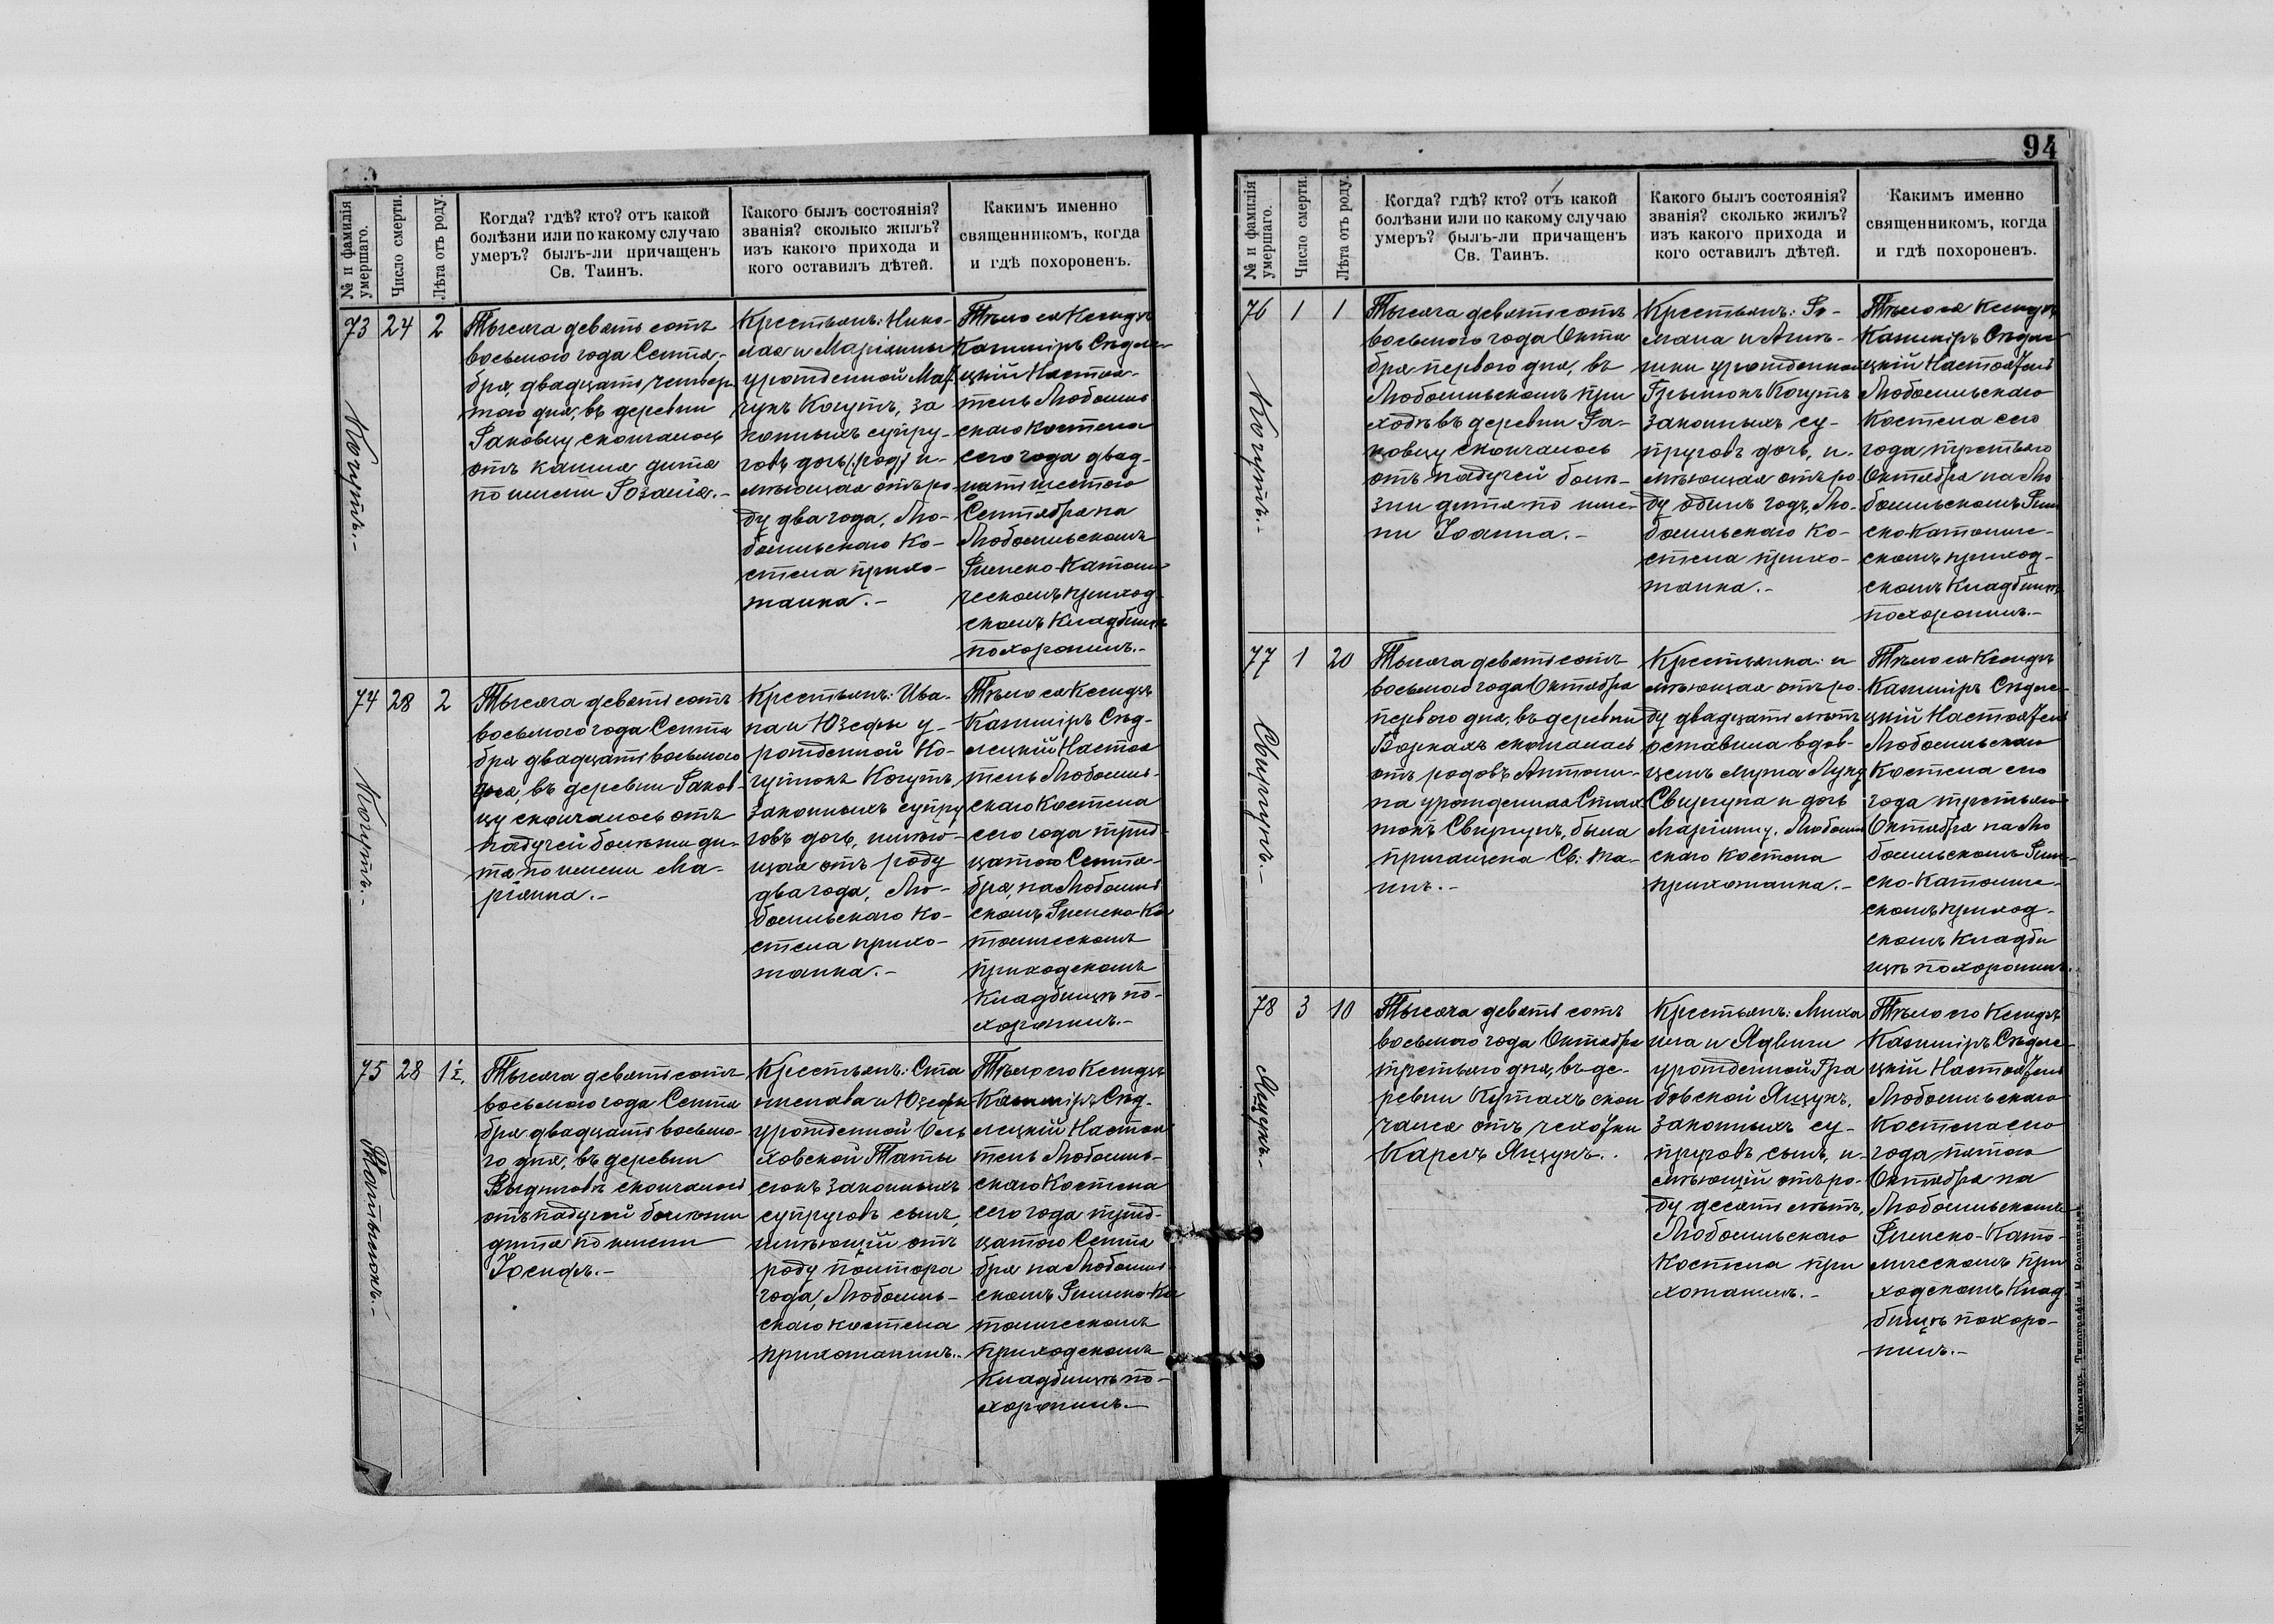 94
№ и фамилія
умершаго.
Число смерти.
Лѣта отъ роду.
Когда? гдѣ? кто? отъ какой
болѣзни или по какому случаю
умеръ? былъ-ли причащенъ
Св. Таинъ.
Какого былъ состоянія?
званія? сколько жилъ?
изъ какого прихода и
кого оставилъ дѣтей.
Какимъ именно
священникомъ, когда
и гдѣ похороненъ.
73
24
2
Когутъ.-
Тысяча девятьсотъ
восьмого года Сентя-
бря, двадцать четвер-
того дня, въ деревни
Раковцу скончалось
отъ кашля дитя
по имени Розалія.-
Крестьянъ: Нико-
лая и Маріанны
урожденной
Когутъ, за
конныхъ супру-
говъ дочь, и-
мѣющая отъ ро-
ду два года, Лю-
бомльскаго Ко-
стела прихо-
жанка.-
Тѣло ея Ксендзъ
Казиміръ Сѣдле-
цкій Настоя-
тель Любомль
скаго Костела
сего года двад-
цать шестого
Сентября на
Любомльскомъ
Римско-Католи
ческомъ приход-
скомъ Кладбищѣ
похоронилъ.-
74
28
2
Когутъ.-
Тысяча девятьсотъ
восьмого года Сентя
бря двадцать восьмого
дня, въ деревни Раков-
цу скончалось отъ
падучей болѣзни ди-
тя по имени Ма-
ріанна.-
Крестьянъ: Ива-
на и Юзефы у-
рожденной Ко-
гутюкъ Когутъ,
законныхъ супру
говъ дочь, имѣю-
щая отъ роду
два года, Лю-
бомльскаго Ко-
стела прихо-
жанка.-
Тѣло ея Ксендзъ
Казиміръ Сѣд-
лецкій Настоя
тель Любомль-
скаго Костела
сего года трид-
цатого Сентя-
бря, на Любомль
скомъ Римско-Ка
толическомъ
приходскомъ
Кладбищѣ по-
хоронилъ.-
75
28
1½
Тысяча девятьсотъ
восьмого года Сентя
бря двадцать восьмо-
го дня, въ деревни
скончалось
отъ падучей болѣзни
дитя по имени
Іосифъ.-
Крестьянъ: Ста
нислава и Юзефы
урожденной Оль
ховской
законныхъ
супруговъ сынъ,
имѣющій отъ
роду полтора
года, Любомль-
скаго костела
прихожанинъ.-
Тѣло его Ксендзъ
Казиміръ Сѣд-
лецкій Настоя
тель Любомль-
скаго Костела
сего года трид-
цатого Сентя
бря на Любомль
скомъ Римско-Ка
толическомъ
приходскомъ
Кладбищѣ по-
хоронилъ.-
№ и фамилія
умершаго.
Число смерти.
Лѣта отъ роду.
Когда? гдѣ? кто? отъ какой
болѣзни или по какому случаю
умеръ? былъ-ли причащенъ
Св. Таинъ.
Какого былъ состоянія?
званія? сколько жилъ?
изъ какого прихода и
кого оставилъ дѣтей.
Какимъ именно
священникомъ, когда
и гдѣ похороненъ.
76
1
1
Когутъ.-
Тысяча девятьсотъ
восьмого года Октя
бря первого дня, въ
Любомльскомъ при
ходѣ въ деревни Ра-
ковцу скончалось
отъ падучей болѣ-
зни дитя по име-
ни Іоанна.-
Крестьянъ: Ро-
мана и Агнѣ-
шки урожденной
Грынюкъ Когутъ
законныхъ су-
пруговъ дочь, и-
мѣющая отъ ро
ду одинъ годъ, Лю-
бомльскаго Ко-
стела прихо-
жанка.-
Тѣло ея Ксендзъ
Казиміръ Сѣдле
цкій Настоятель
Любомльскаго
Костела сего
года третьяго
Октября на Лю
бомльскомъ Рим
ско-Католиче-
скомъ приход-
скомъ Кладбищѣ
похоронилъ.-
77
1
20
Свиргунъ.-
Тысяча девятьсотъ
восьмого года Октября
первого дня, въ деревни
скончалась
отъ родовъ Антони-
на урожденная
Свиргунъ, была
причащена Св: Та-
инъ.-
Крестьянка: и
мѣющая отъ ро-
ду двадцать лѣтъ
оставила вдов-
цемъ мужа Луку
Свиргуна и дочь
Маріанну, Любомль
скаго Костела
прихожанка.-
Тѣло ея Ксендзъ
Казиміръ Сѣдле-
цкій Настоятель
Любомльскаго
Костела сего
года третьяго
Октября на Лю
бомльскомъ Рим-
ско-Католиче-
скомъ приход-
скомъ Кладби
щѣ похоронилъ.
78
3
10
Ящукъ.-
Тысяча девятьсотъ
восьмого года Октября
третьяго дня, въ де-
ревни Кутахъ скон
чался отъ чахотки
Карлъ Ящукъ.-
Крестьянъ: Миха
ила и Ядвиги
урожденной Гра
бовской Ящукъ,
законныхъ су-
пруговъ сынъ, и-
мѣющій отъ ро-
ду десять лѣтъ,
Любомльскаго
Костела при
хожанинъ.-
Тѣло его Ксендзъ
Казиміръ Сѣдле-
цкій Настоятель
Любомльскаго
Костела сего
года пятого
Октября на
Любомльскомъ
Римско-Като-
лическомъ при
ходскомъ Клад
бищѣ похоро-
нилъ.-